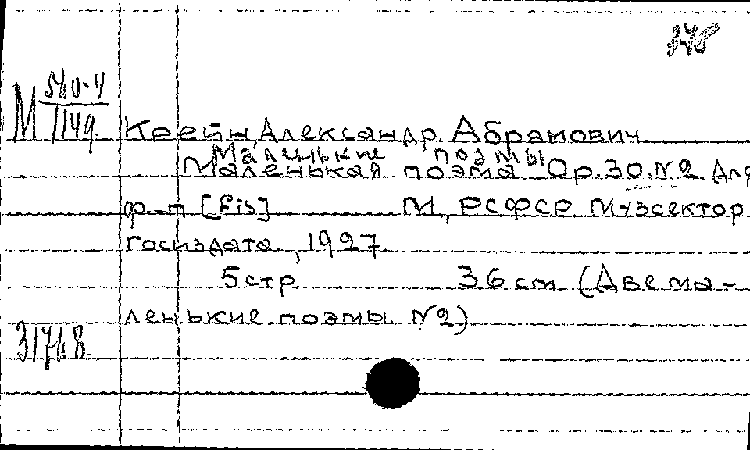 М 560-4
1149
Крейн, Александр Абрамович
Маленькие поэмы
Маленькая поэма Op. 30. № 2 Для
ф-п [Fis] М., РСФСР Музсектор
Госиздата, 1927
5 стр 36 см (Две ма-
ленькие поэмы № 2)